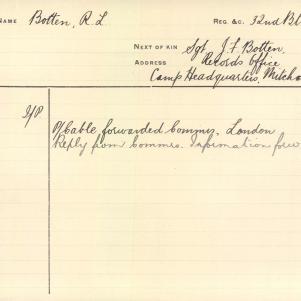 NAME Botten, R L REG. &C. 32nd
NEXT OF KIN Sgt J. F Botten,
ADDRESS Records Office
Camp Headquarters,
O/Cable forwarded Commrs. London
Reply from Commrs. Information